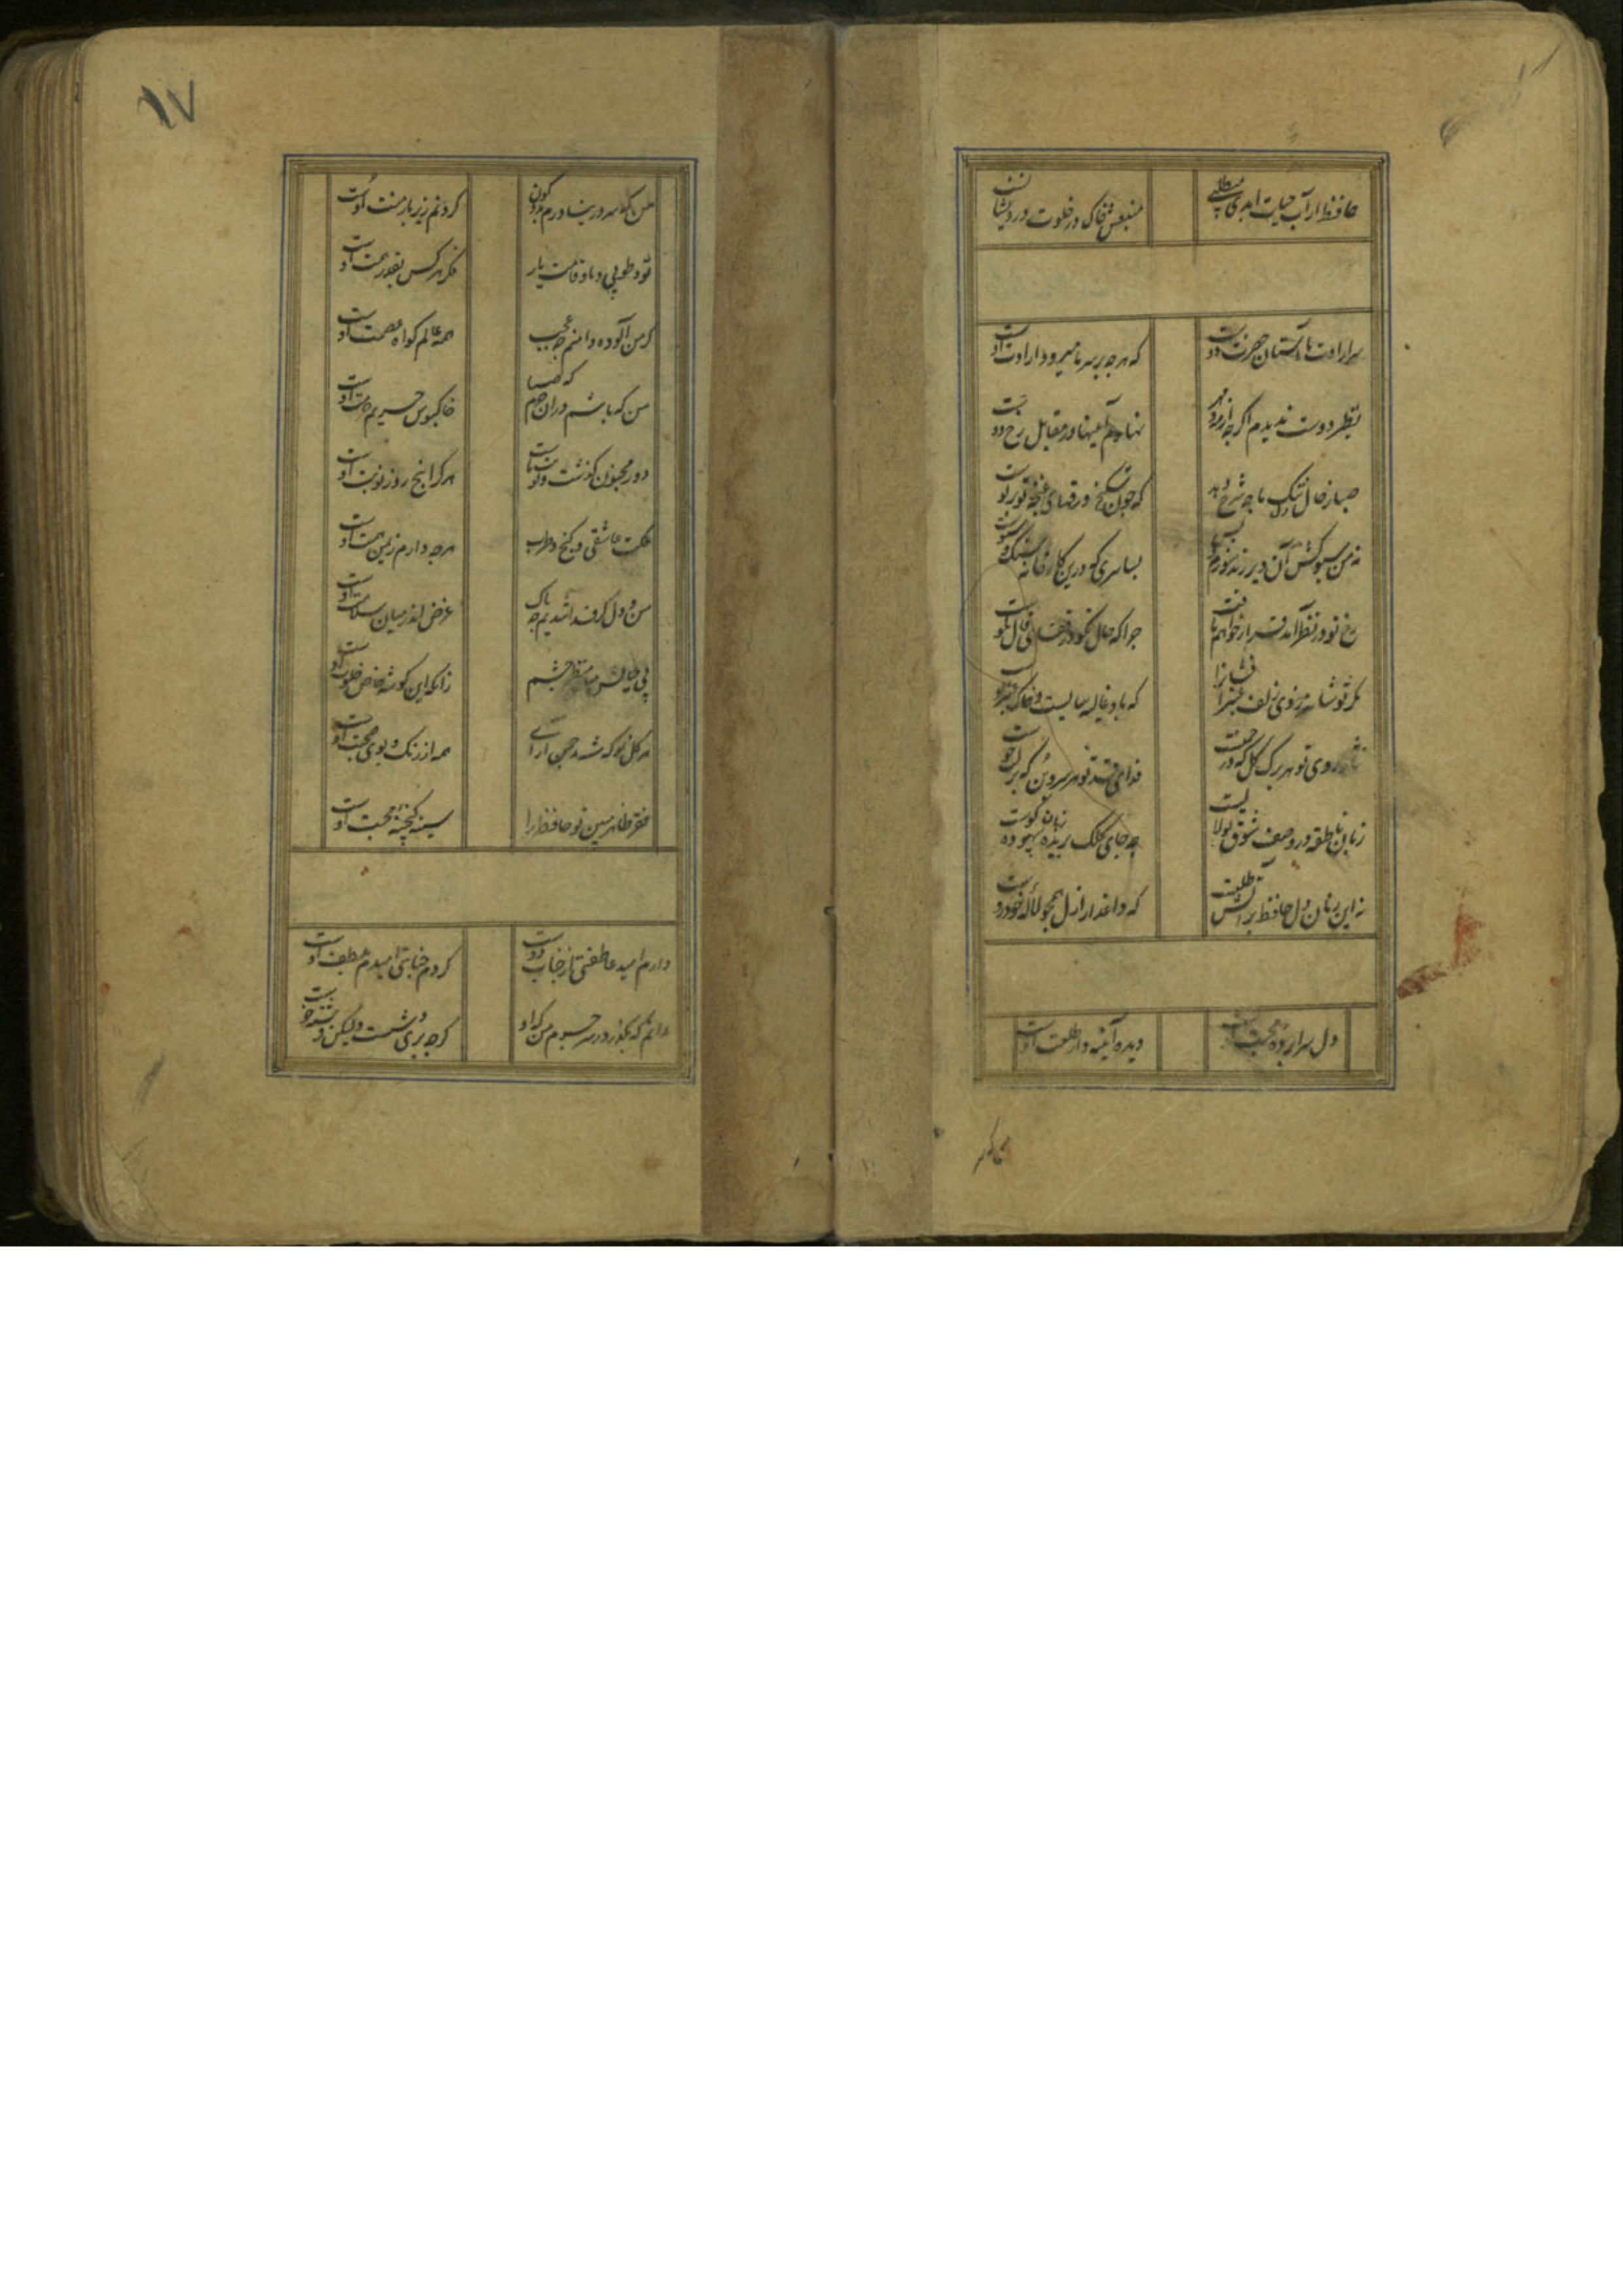 حافظ ار آب حیات ابدی میطلبی
منبعش خاک در خلوت درویشانست
سر ارادت ما و آستان حضرت دوست
که هرچه بر سر ما میرود ارادت اوست
نظیر دوست ندیدم اگرچه از مه و مهر
نهادم آینها در مقابل رخ دوست
صبا ز حال دل تنگ ما چه شرح دهد
که چون شکنج ورقهای غنچه تو بر توست
نه من سبوکش آن دیر رندسوزم و بس
بسا سری که درین کارخانه سنک و سبوست
رخ تو در نظر آمد قرار خواهم یافت
چرا که حال نکو در قفای فال نکوست
مکر تو شانه زدی زلف عنبر افشانرا
که باد غالیه سایست و خاک عنبر بوست
نثار روی تو هر برک کل که در چمنست
فدای قد تو هر سرو بن که بر لب جوست
زبان ناطقه در وصف شوق او لالیست
چه جای کلک بریده زبان بیهوده کوست
نه این زمان دل حافظ بر آتش طلبست
که داغدار ازل همچو لاله خودروست
دل سراپرده محبت اوست
دیده آینه دار طلعت اوست
من که سر در نیاورم بدو کون
کردنم زیر بار منت اوست
تو و طوبی و ما و قامت یار
فکر هر کس بقدر همت اوست
کر من آلوده دامنم چه عجب
همه عالم کواه عصمت اوست
من که باشم دران حرم که صبا
خاکبوس حریم حرمت اوست
دور مجنون کذشت و نوبت ماست
هر کرا پنج روز نوبت اوست
ملکت عاشقی و کنج طرب
هرچه دارم ز یمن همت اوست
من و دل کر فدا شدیم چه باک
غرض اندر میان سلامت اوست
بی خیالش مباد منظر چشم
زانکه این کوشه خاص خلوت اوست
هر کل نو که شد چمن آرای
همه از رنک و بوی صحبت اوست
فقر ظاهر مبین تو حافظ را
سینه کنجینه محبت اوست
دارم امید عاطفتی از جناب دوست
کردم جنایتی امیدم بلطف اوست
دانم که بکذرد ز سر جرم من که او
کرچه پری وشست ولیکن فرشته خوست
۱۷